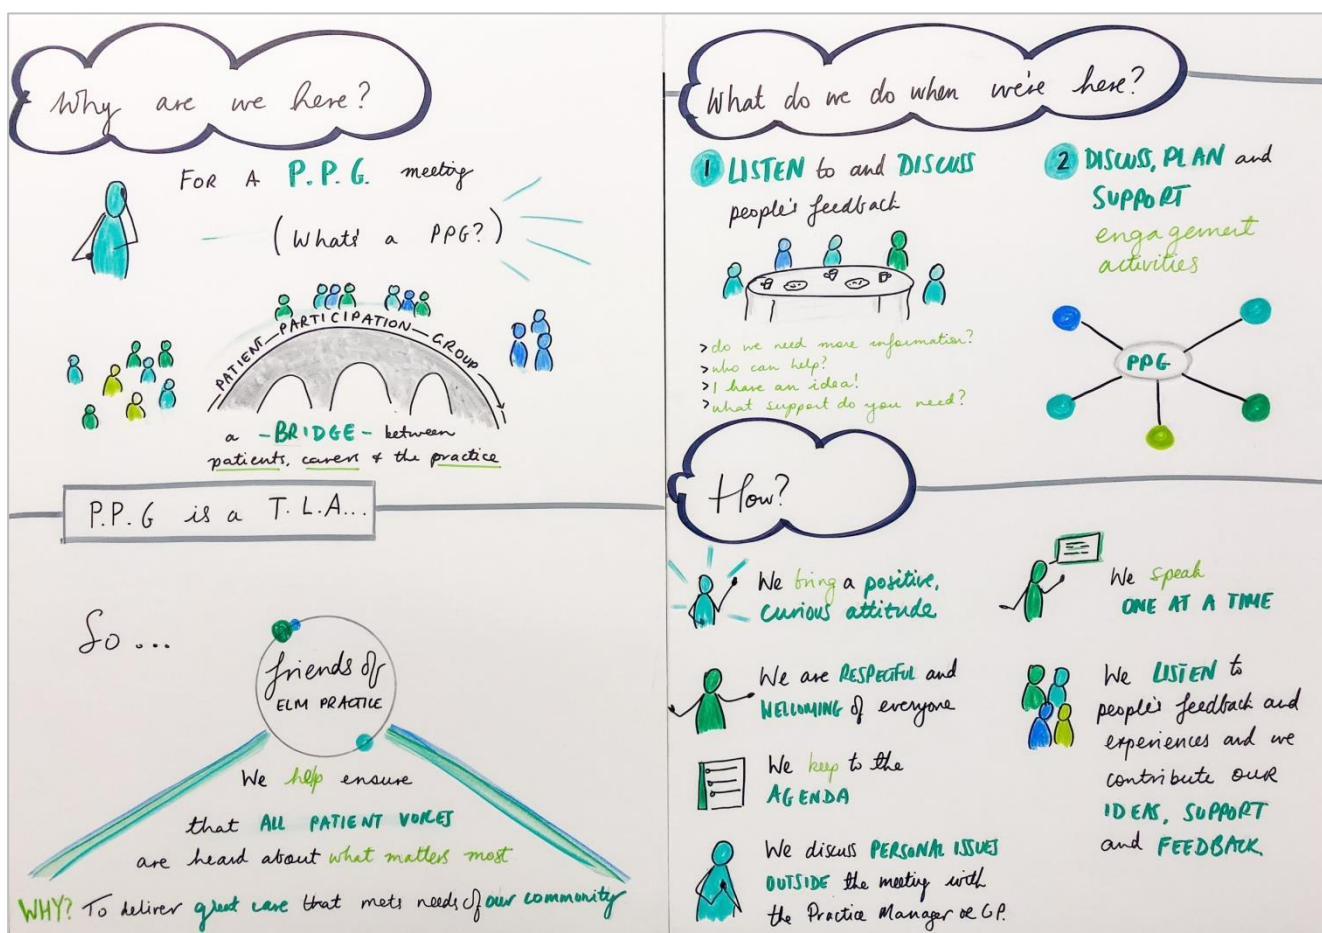 Why are we here?
FOR A P.P.G. meeting
(Whats' a PPG?)
PATIENT-PARTICIPATION-GROUP
a -BRIDGE- between
patients, carers & the practice
P.P.G is a T.L.A...
So...
friends of
ELM PRACTICE
We help ensure
that ALL PATIENT VOICES
are heard about what matters most
WHY? To deliver great care that mets needs of our community
What do we do when we're here?
1 LISTEN to and DISCUSS
people's feedback
> do we need more information?
> who can help?
> I have an idea!
> what support do you need?
2 DISCUSS, PLAN and
SUPPORT
engagement
activities
PPG
How?
We bring a positive,
curious attitude
We are RESPECTFUL and
WELCOMING of everyone
We keep to the
AGENDA
We discuss PERSONAL ISSUES
OUTSIDE the meeting with
the Practice Manager or GP.
We speak
ONE AT A TIME
We LISTEN to
people's feedback and
experiences and we
contribute our
IDEAS, SUPPORT
and FEEDBACK.